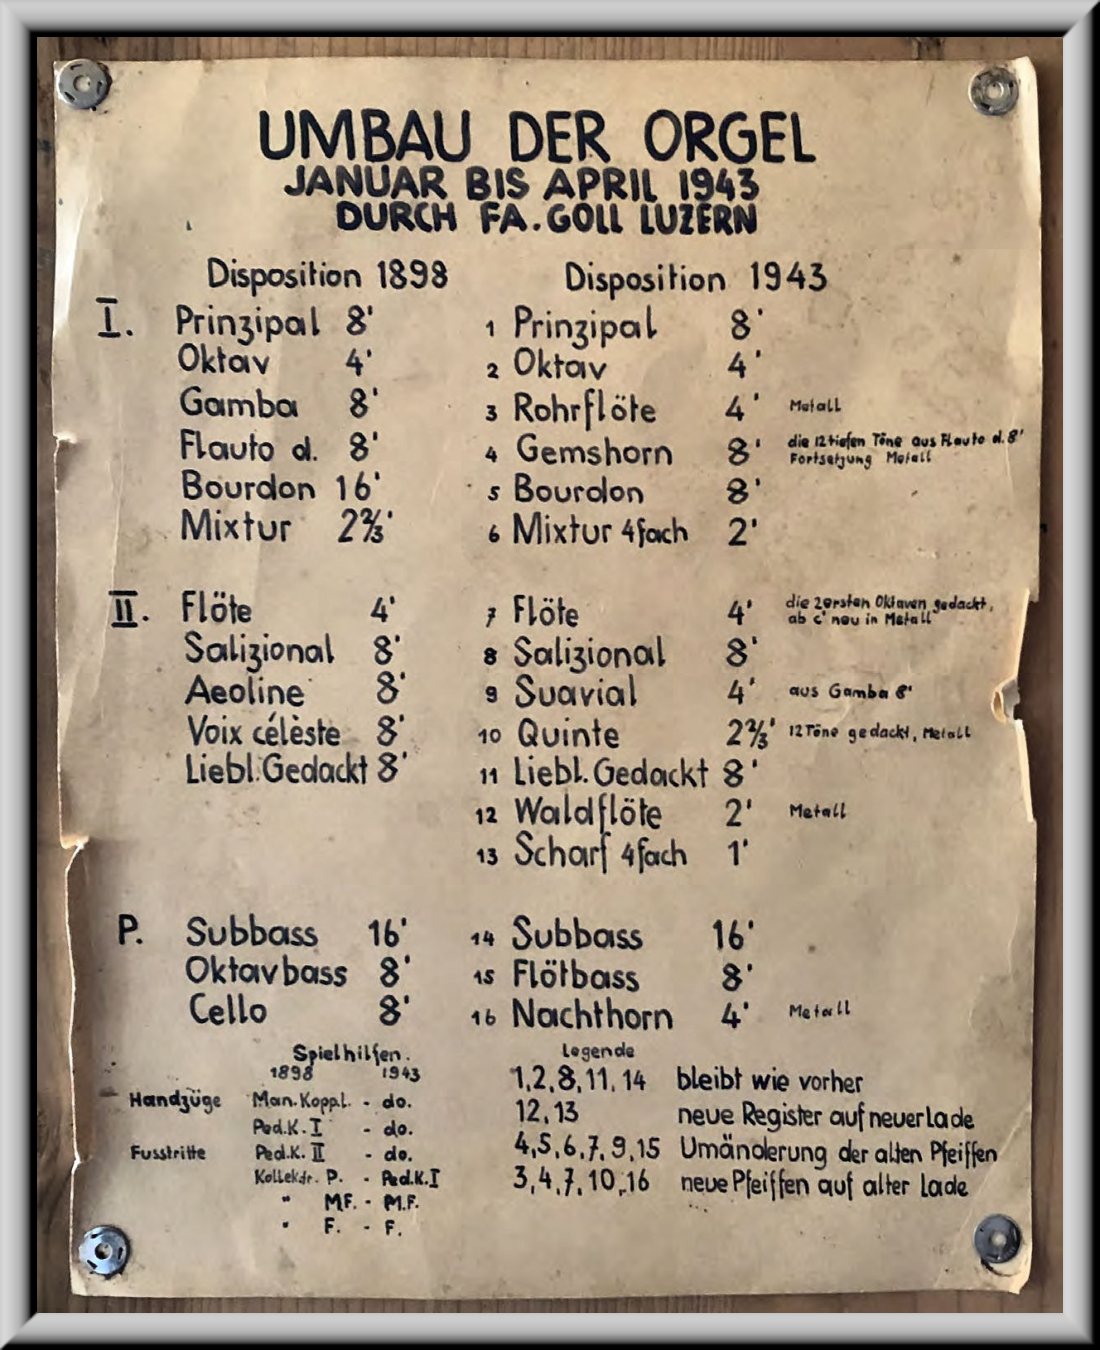 UMBAU DER ORGEL
JANUAR BIS APRIL 1943
DURCH FA. GOLL LUZERN
Disposition 1898 Disposition 1943
I. Prinzipal 8' 1 Prinzipal 8'
Oktav 4' 2 Oktav 4'
Gamba 8' 3 Rohrflöte 4' Metall
Flauto d. 8' 4 Gemshorn 8' die 12 tiefen Töne aus Flauto d. 8'
Fortsetzung Metall
Bourdon 16' 5 Bourdon 8'
Mixtur 2⅔' 6 Mixtur 4fach 2'
II. Flöte 4' 7 Flöte 4' die 2 ersten Oktaven gedackt,
ab c' neu in Metall
Salizional 8' 8 Salizional 8'
Aeoline 8' 9 Suavial 4' aus Gamba 8'
Voix célèste 8' 10 Quinte 2⅔' 12 Töne gedackt, Metall
Liebl. Gedackt 8' 11 Liebl. Gedackt 8'
12 Waldflöte 2' Metall
13 Scharf 4fach 1'
P. Subbass 16' 14 Subbass 16'
Oktavbass 8' 15 Flötbass 8'
Cello 8' 16 Nachthorn 4' Metall
Spielhilfen. Legende
1898 1943 1,2,8,11,14 bleibt wie vorher
Handzüge Man. Koppl. - do. 12,13 neue Register auf neuer Lade
Ped. K. I - do.
Fusstritte Ped. K. II - do. 4,5,6,7,9,15 Umänderung der alten Pfeiffen
Kollektr. P. - Ped. K. I 3,4,7,10,16 neue Pfeiffen auf alter Lade
" MF. - M.F.
" F. - F.